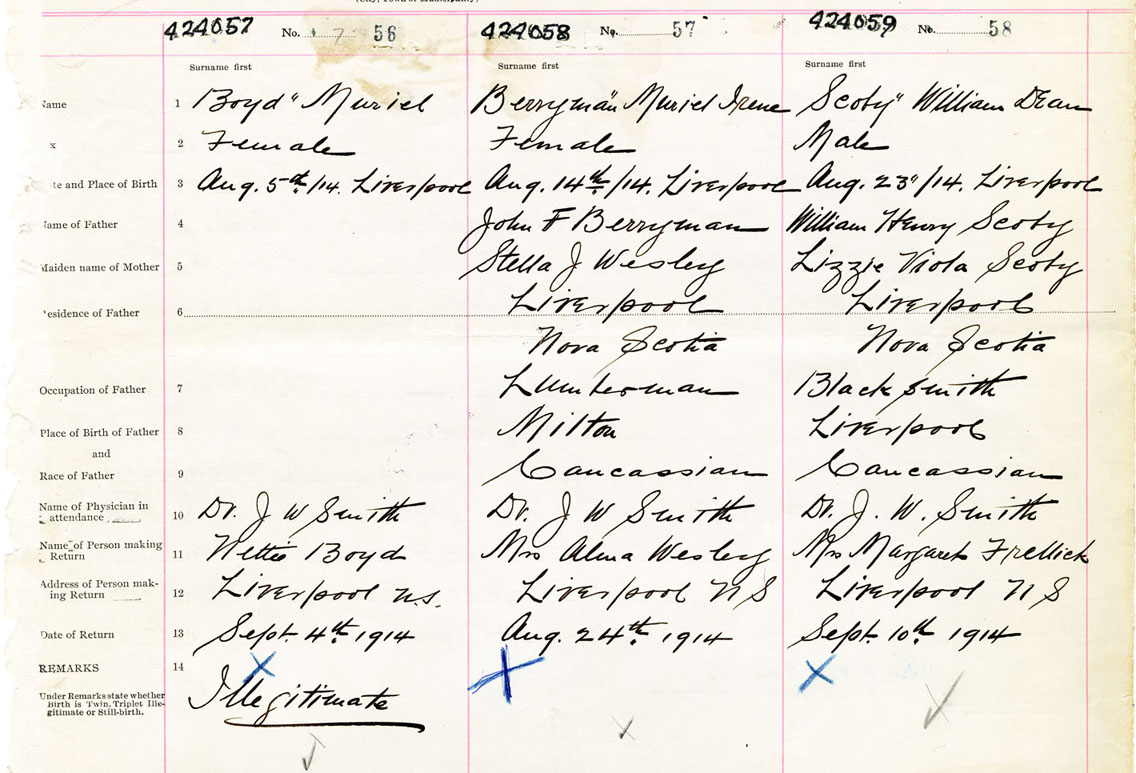 (City, Town or Municipality)
424057 No. 7 56 424058 No. 57 424059 No. 58
Surname first Surname first Surname first
Name 1 Boyd" Muriel Berryman" Muriel Irene Scoby" William Dean
x 2 Female Female Male
te and Place of Birth 3 Aug. 5th/14. Liverpool Aug. 14th/14. Liverpool Aug. 23"/14. Liverpool
Name of Father 4 John F Berryman William Henry Scoby
Maiden name of Mother 5 Stella J Wesley Lizzie Viola Scoby
esidence of Father 6 Liverpool Liverpool
Nova Scotia Nova Scotia
Occupation of Father 7 Lumberman Blacksmith
Place of Birth of Father 8 Milton Liverpool
and
Race of Father 9 Caucassian Caucassian
Name of Physician in
attendance 10 Dr. J W Smith Dr. J W Smith Dr. J. W. Smith
Name of Person making
Return 11 Nettie Boyd Mrs Alma Wesley Mrs Margaret Frellick
Address of Person mak-
ing Return 12 Liverpool N.S. Liverpool N S Liverpool N S
Date of Return 13 Sept. 4th. 1914 Aug. 24th. 1914 Sept. 10th 1914
REMARKS 14
Under Remarks state whether
Birth is Twin, Triplet Ille-
gitimate or Still-birth.
Illegitimate